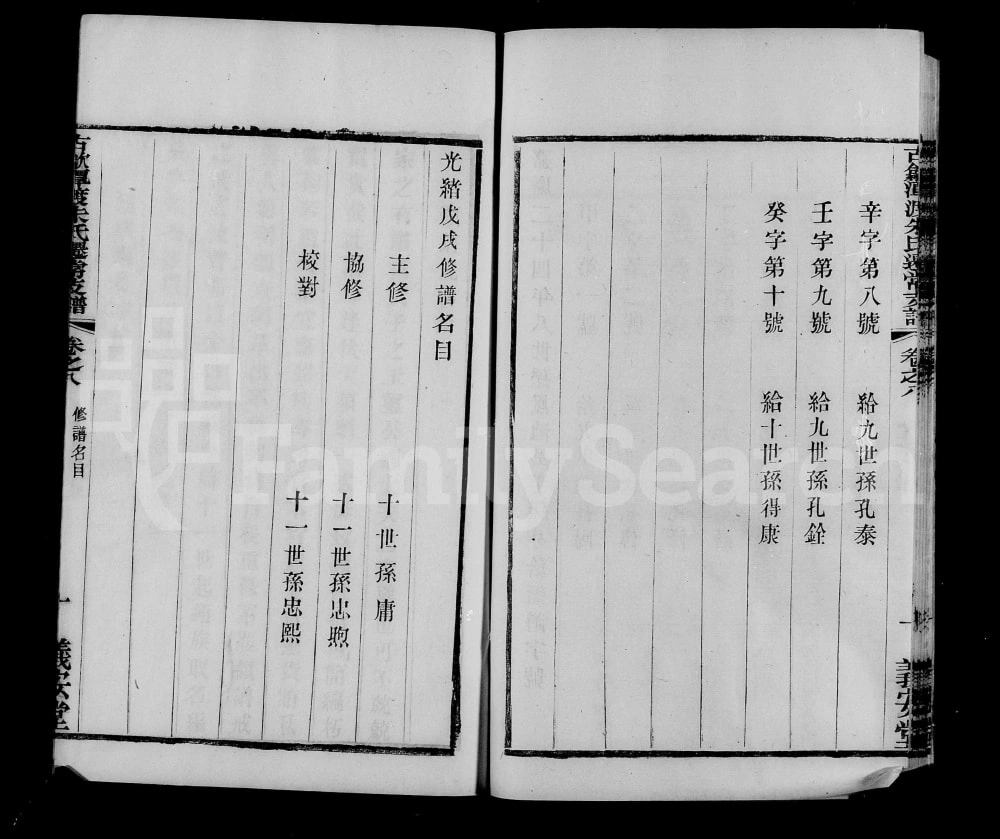 辛字第八號 給九世孫孔泰
壬字第九號 給九世孫孔銓
癸字第十號 給十世孫得康
卷之八
一
義安堂
光緒戊戌修譜名目
主修 十世孫 庸
協修 十一世孫忠煦
校對 十一世孫忠熙
朱氏遷常支譜
卷之八
修譜名目
義安堂
FamilySearch